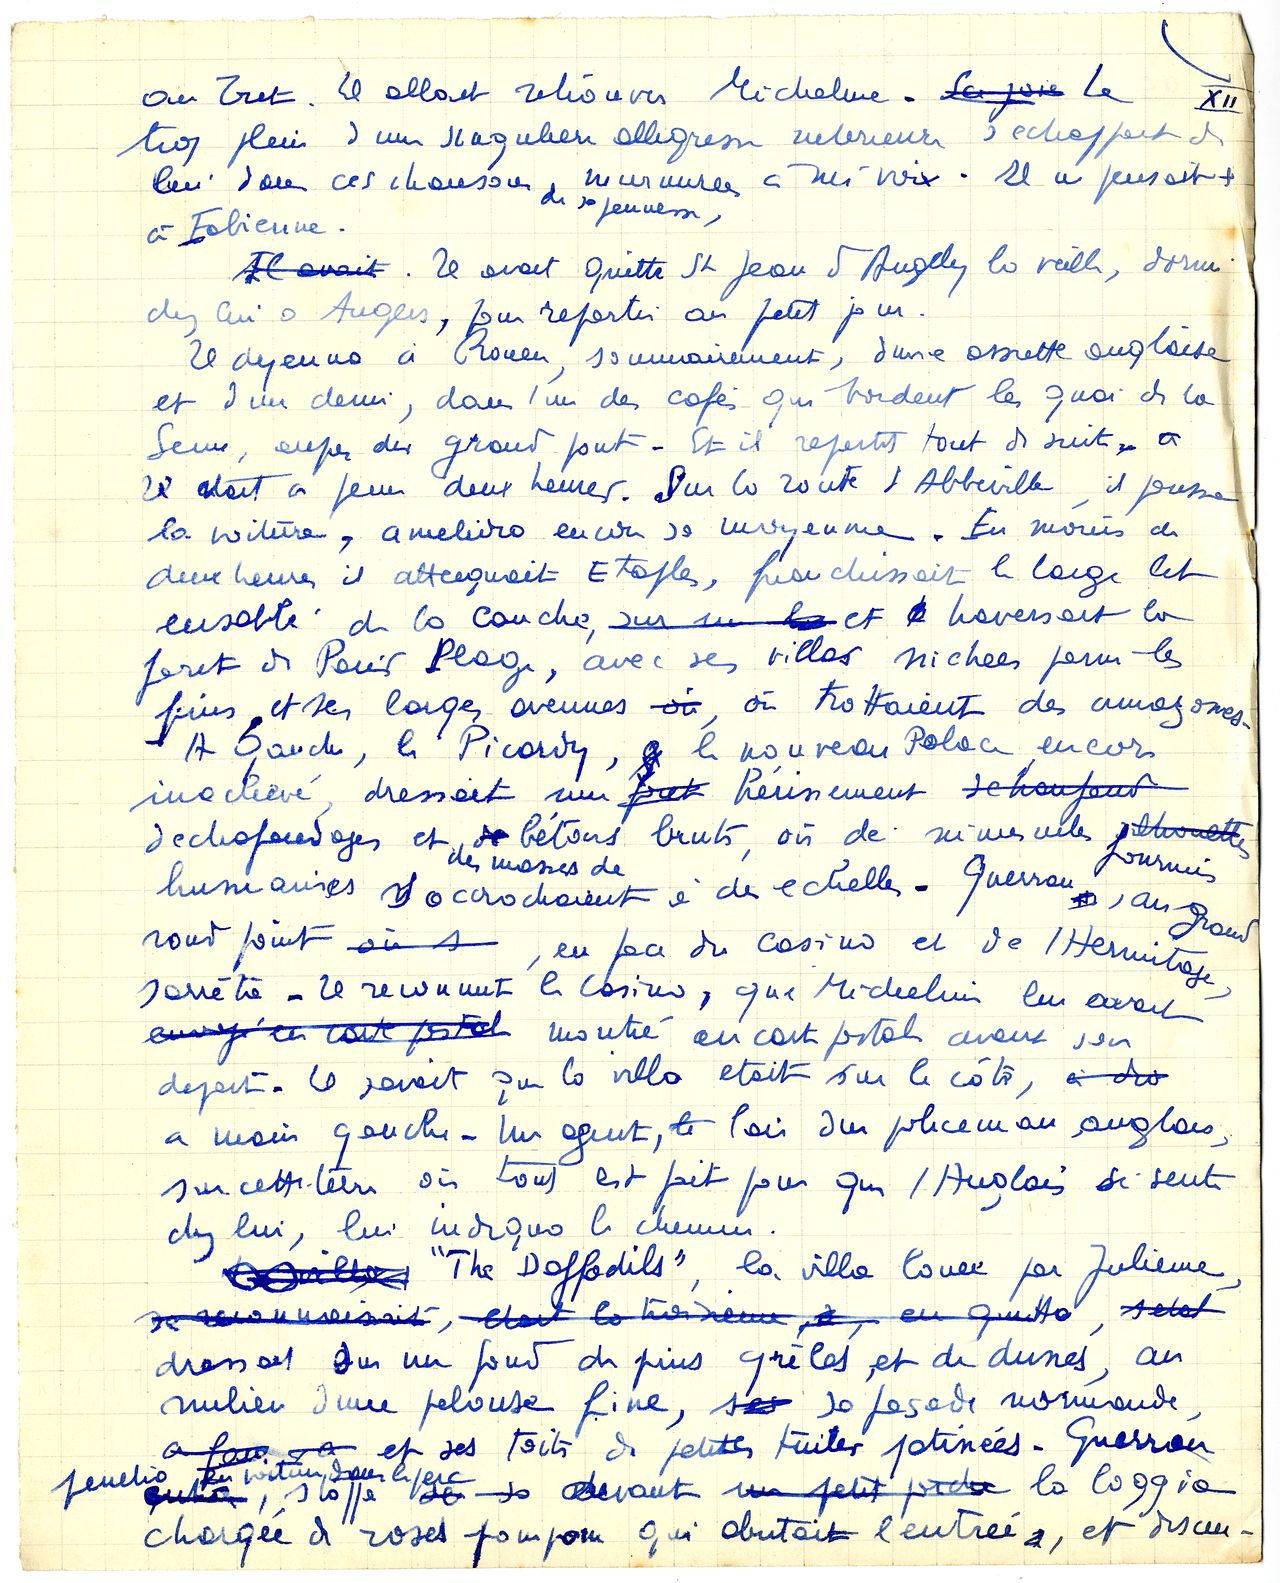 XII
Il allait retrouver Micheline. Sa joie Le
trop plein d'une singuliere allegresse interieure s'echappait de
lui dans ces chansons de sa jeunesse, murmurees a mi voix. Il ne pensait +
à Fabienne.
Il avait. Il avait quitté St Jean d'Angely la veille, dormi
chez lui a Angers, pour repartir au petit jour.
Il dejeuna à Rouen, sommairement, d'une assiette anglaise
et d'un demi, dans l'un des cafés qui bordent les quai de la
Seine, aupres du grand pont - Et il repartit tout de suite,
Il etait a peine deux heures. Sur la route d'Abbeville, il poussa
la voiture, ameliora encore sa moyenne. En moins de
deux heures il atteignait Etaples, franchissait le large lit
ensablé de la Canche, sur un la et traversait la
foret de Paris Plage, avec ses villas nichees parmi les
pins, et ses larges avenues où, où trottaient des amazones.
A Gauche, le Picardy, le nouveau Palace encore
inachevé, dressait un fut hérissement
d'echafaudages et de bétons bruts, où de minuscules silhouettes fourmis
humaines des masses de s'accrochaient à des echelles. Guerran, au grand
rond point où s, en face du casino et de l'Hermitage,
s'arrêta - Il reconnut le casino, que Micheline lui avait
envoyé en carte postale montré en carte postale avant son
depart. Il savait que la villa etait sur le côté, à dro
a main gauche - Un agent, l'air d'un policeman anglais,
sur cette terre où tout est fait pour que l'Anglais se sente
chez lui, lui indiqua le chemin.
La villa "The Daffodils", la villa louee par Julienne,
se reconnaissait, etait la troisieme, en quitta,
dressait sur un fond de pins grêles et de dunes, au
milieu d'une pelouse fine, ses sa façade normande,
a fau et ses toits de petites tuiles patinées. Guerran
penetra en voiture dans le parc, stoppa devant un petit la loggia
chargée de roses pompom qui abritait l'entrée, et descen-